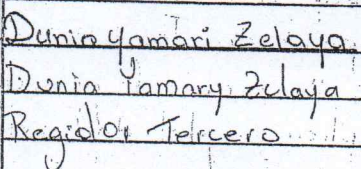 Dunia Yamari Zelaya.
Dunia Yamary Zelaya
Regidor Tercero